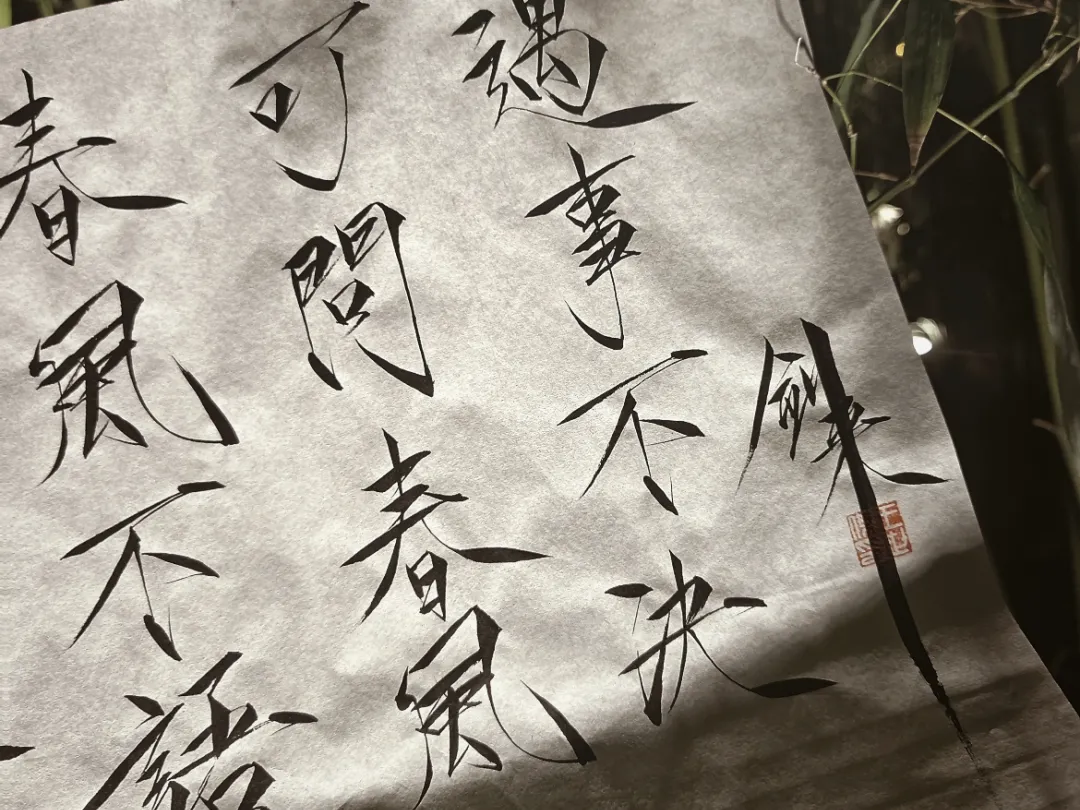 遇事不決
可問春風
春風不語